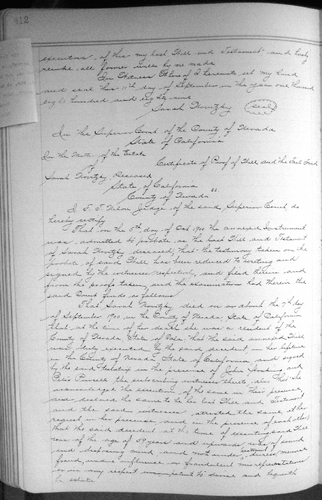 412
executrix, of this my last Will and Testament and hereby
revoke all former Wills by me made
In Witness Whereof I hereunto set my hand
and seal this 11th day of September in the year one thousand
eight hundred and eighty
Sarah (Seal)
In the Superior Court of the County of Nevada
State of California
In the Matter of the Estate
of Certificate of Proof of Will and the Facts Found
Sarah Deceased
State of California
County of Nevada
I, F. T. Nilon Judge of the said Superior Court, do
hereby certify
That on the day of Oct 1900 the annexed instrument
was admitted to probate as the last Will and Testament
of Sarah deceased, that the testimony taken on the
probate of said Will has been reduced to writing and
signed by the witnesses respectively, and filed therein and
from the proofs taken and the examination had therein the
said Court finds as follows
That Sarah died on or about the 7th day
of September 1900 in the County of Nevada State of California
that at the time of her death she was a resident of the
County of Nevada State of that the said annexed Will
was duly executed by the said decedent in her lifetime
in the County of Nevada State of California, and signed
by the said testatrix in the presence of John and
the subscribing witnesses thereto, also that she
acknowledged the execution of the same in their presence
and declared the same to be her last Will and Testament
and the said witnesses attested the same at her
request in her presence, and in the presence of each other
that the said decedent at the time of executing said Will
was of the age of 59 years and upwards was of sound
and disposing mind, and not under duress, menace
fraud, undue influence or fraudulent misrepresentation
nor in any respect incompetent to devise and bequeath
estate